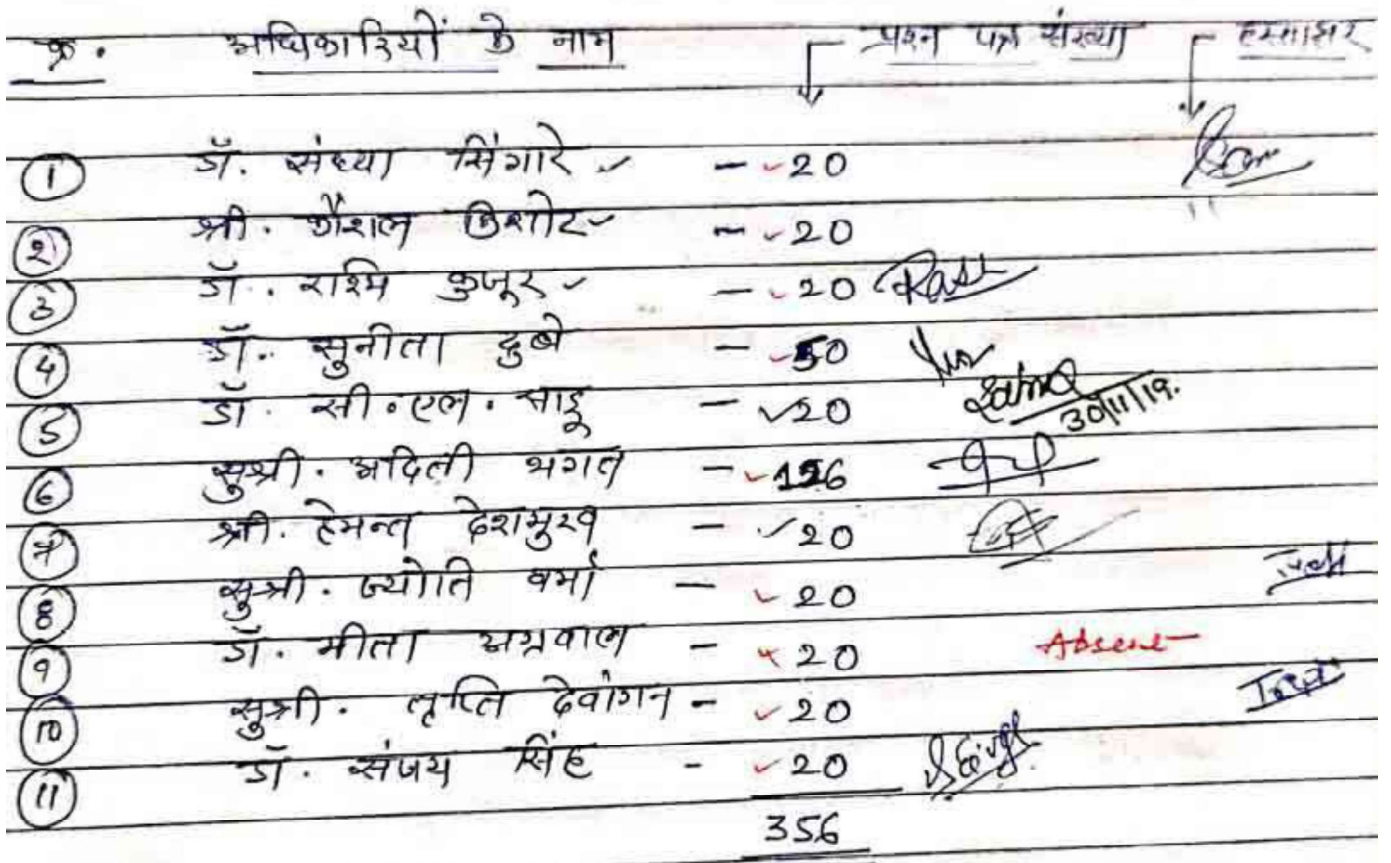 क्र. अधिकारियों के नाम प्रश्न पत्र संख्या हस्ताक्षर
1 डॉ. संध्या सिंगारे - 20
2 श्री. कौशल किशोर - 20
3 डॉ. रश्मि कुजूर - 20
4 डॉ. सुनीता दुबे - 50
5 डॉ. सी.एल. साहू - 20
30/11/19.
6 सुश्री. अदिती भगत - 126
7 श्री. हेमन्त देशमुख - 20
8 सुश्री. ज्योति वर्मा - 20
9 डॉ. मीता अग्रवाल - 20 Absent
10 सुश्री. तृप्ति देवांगन - 20
11 डॉ. संजय सिंह - 20
356